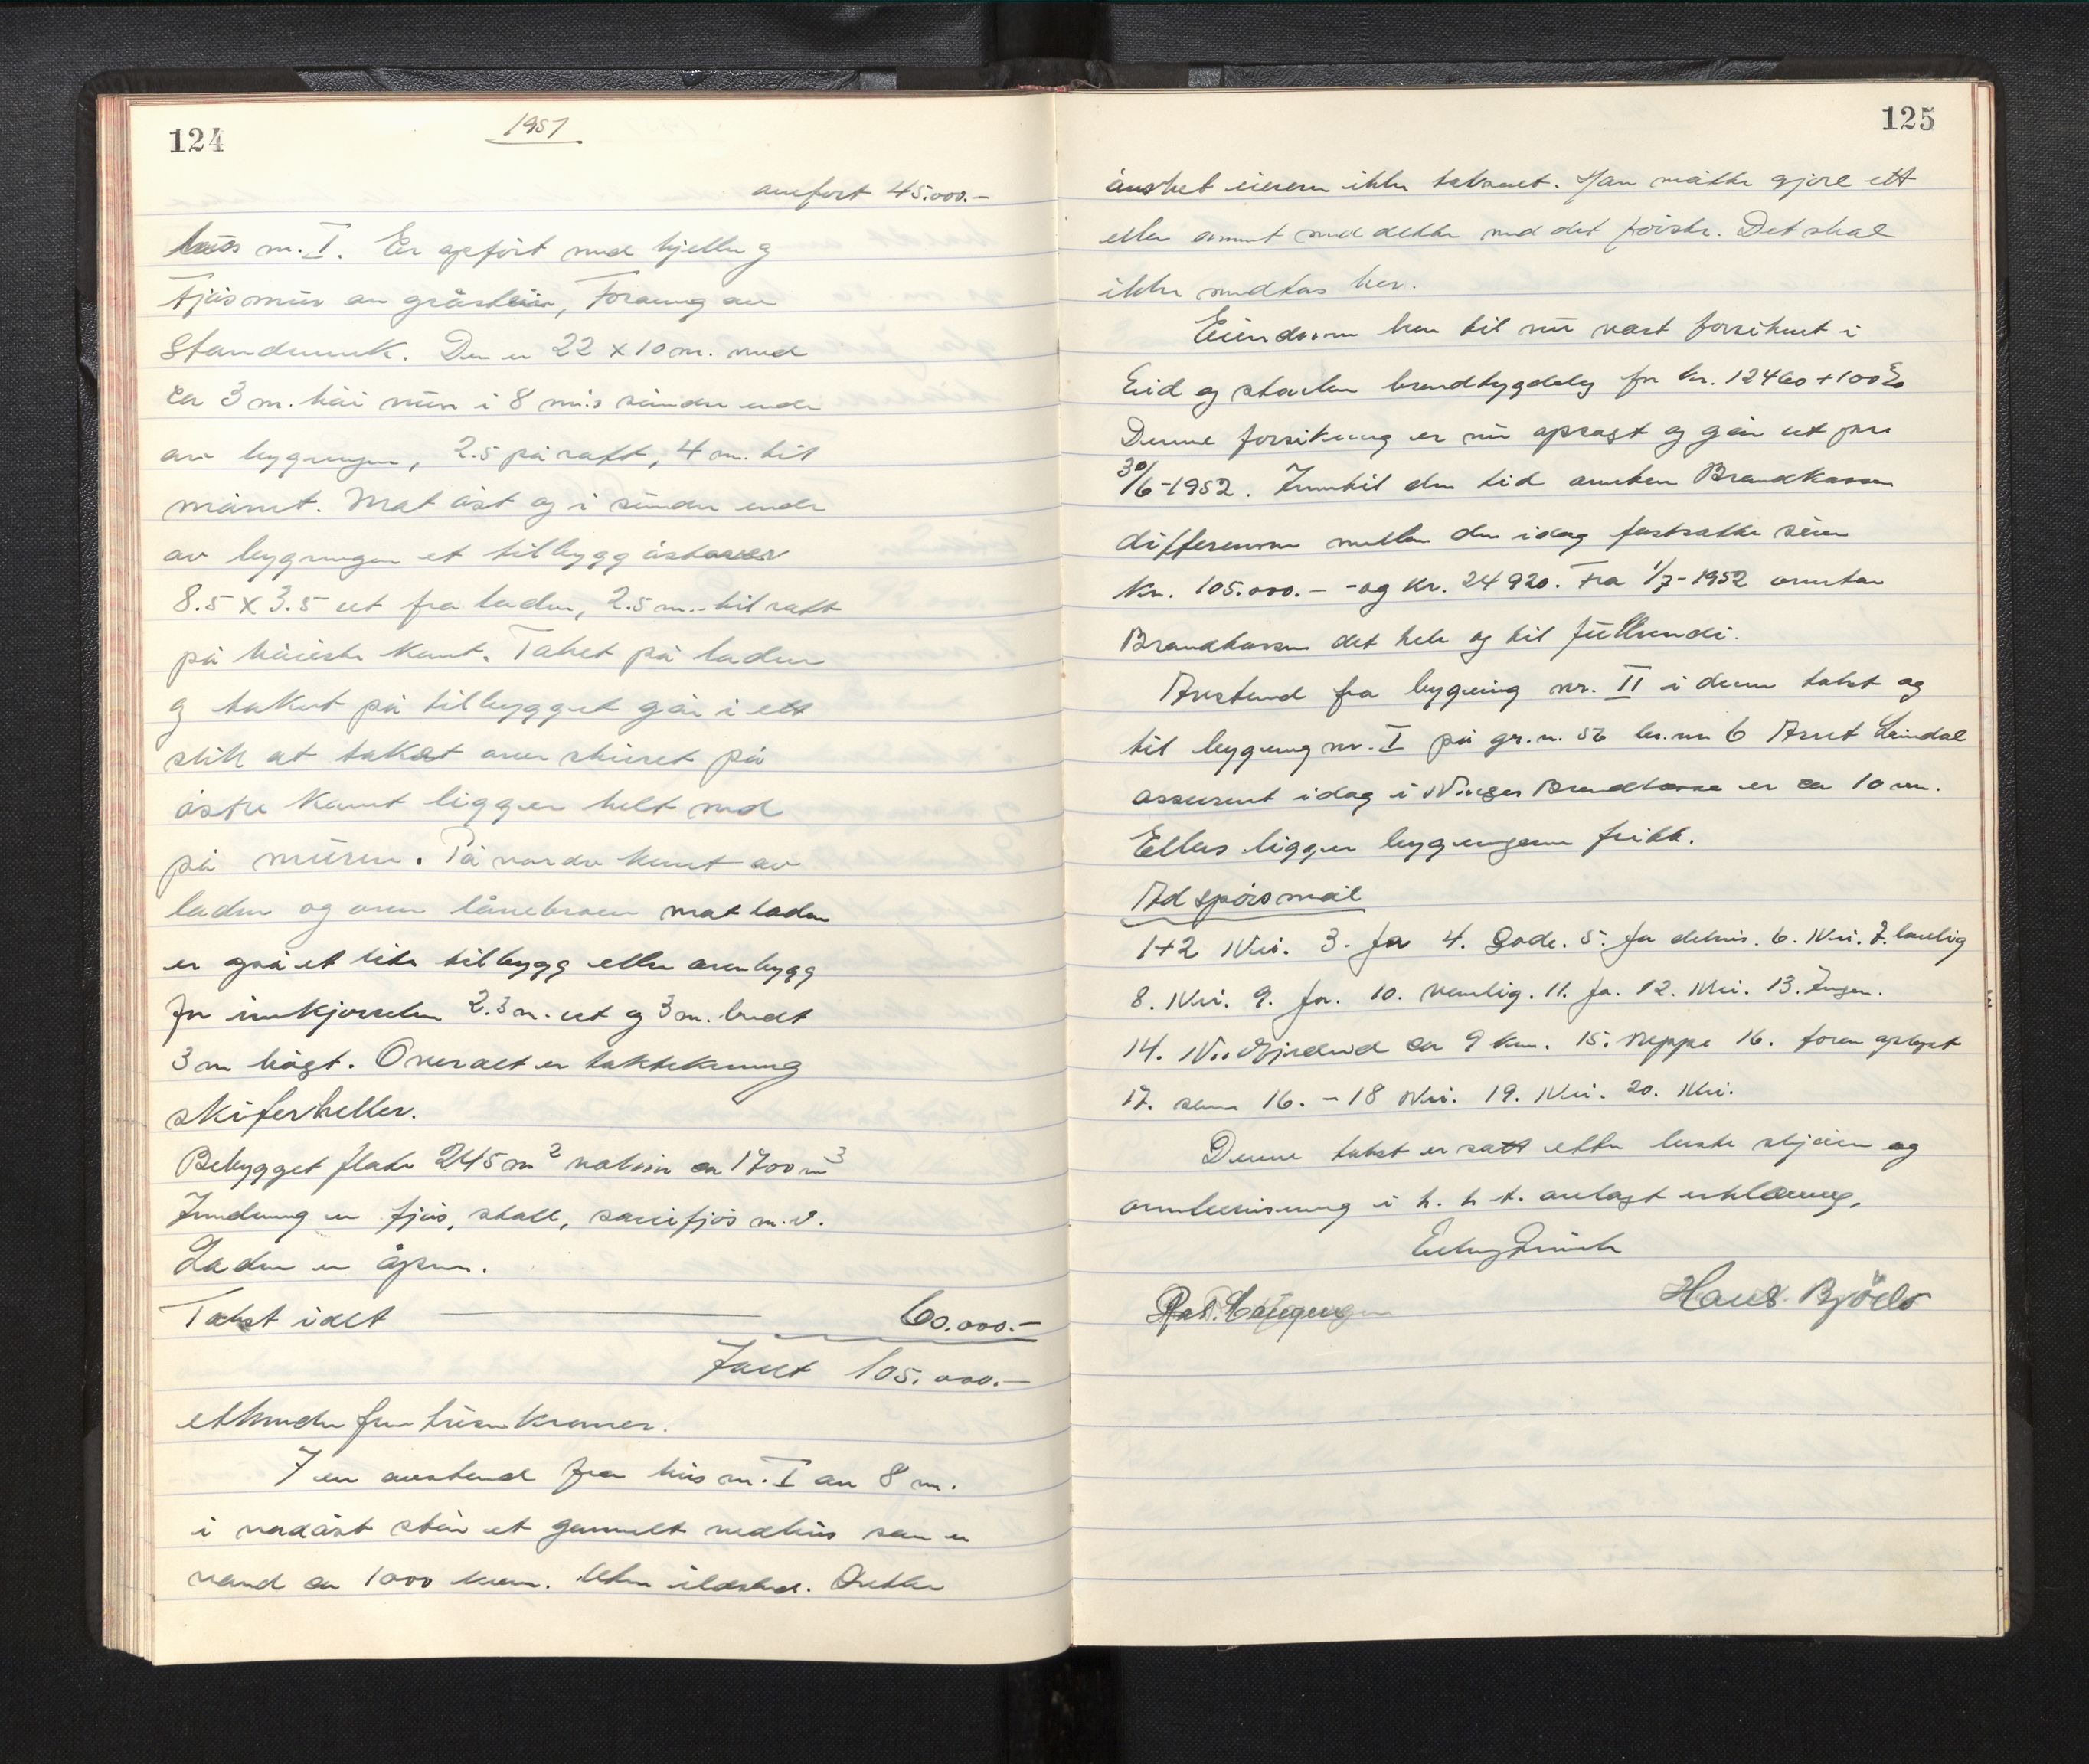 124
1951
overført 45.000.-
hus nr. I. Er opført med kjeller og
Fjøsmur av gråstein, Forøvrig av
Standverk. Den er 22 x 10 m. med
ca 3 m. høi mur i 8 m.s søndre ende
av bygningen, 2.5 på raft, 4 m. til
mønet. Mot øst og i søndre ende
av bygningen et tilbygg østover
8.5 x 3.5 ut fra laden, 2.5 m. til raft
på høieste kant. Taket på laden
og taket på tilbygget går i ett
slik at taket over skuret på
østre kant ligger helt ned
på muren. På nordre kant av
laden og over låvebroen mot laden
er også et lite tilbygg eller overbygg
for innkjørselen 2.3 m. ut og 3 m. bredt
3 m høgt. Overalt er taktekning
skiferheller.
Bebygget flate 245 m² volum ca 1700 m³
Innredning er fjøs, stall, sauefjøs m.v.
Laden er åpen.
Takst idet 60.000.-
Ialt 105.000.-
ethundre fem tusen kroner.
I en avstand fra hus nr. I av 8 m.
i nordøst står et gammelt vedhus som er
verd ca 1000 kron. Uten ildsted. Dette
125
ønsket eieren ikke taksert. Han måtte gjøre ett
eller annet med dette med det første. Det skal
ikke medtas her.
Eiendommen har til nu vært forsikret i
Eid og Starlen brandbygdelag for kr. 12460 + 100%
Denne forsikring er nu opsagt og går ut pr.
30/6-1952. Inntil den tid overtar Brandkassen
differensen mellem den idag fastsatte sum
kr. 105.000.- -og kr. 24920. Fra 1/7-1952 overtar
Brandkassen det hele og til fullverdi.
Avstand fra bygning nr. II i denne takst og
til bygning nr. I på gr.n. 56 br.nr 6 Lindal
assurert idag i Brandkasse er ca 10 m.
Ellers ligger bygningen fritt.
Ad spørsmål
1+2 Nei. 3. Ja 4. Gode. 5. Ja delvis. 6. Nei. 7. lovlig
8. Nei. 9. Ja. 10. vanlig. 11. Ja. 12. Nei. 13. Ingen.
14. Nei ca 9 km. 15. Neppe 16. foran oplyst
17. som 16. - 18 Nei. 19. Nei. 20. Nei.
Denne takst er satt efter beste skjønn og
overbevisning i h. h t. avlagt erklæring.
Hans Bjöelo